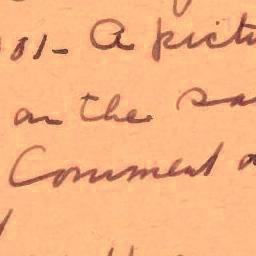 01- A pictu
on the sa
Comment a